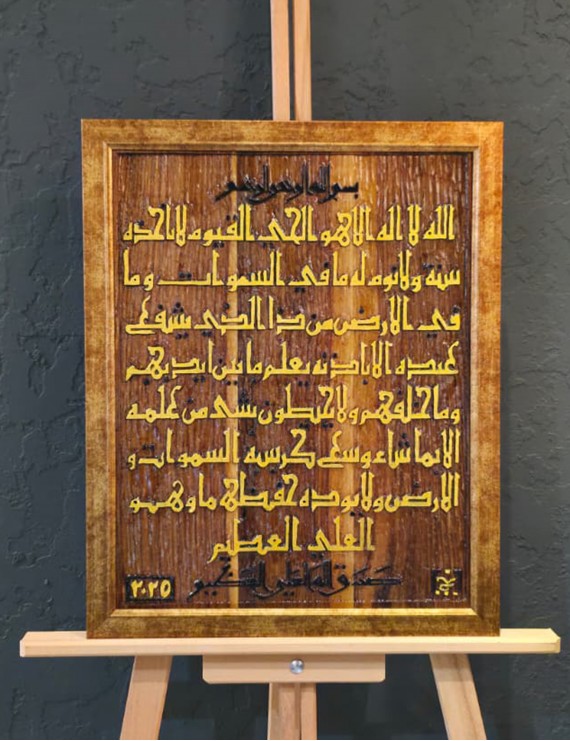 بسم الله الرحمن الرحيم
الله لا اله الا هو الحي القيوم لا تاخذه
سنة ولا نوم له ما في السموات وما
في الارض من ذا الذي يشفع
عنده الا باذنه يعلم ما بين ايديهم
وما خلفهم ولا يحيطون بشي من علمه
الا بما شاء وسع كرسيه السموات و
الارض ولا يوده حفظهما وهو
العلي العظيم
صدق الله العلي الكبير
٢٠٢٥